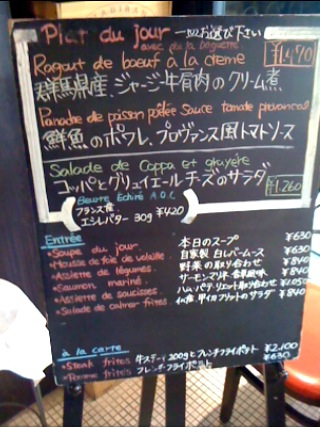 Plat du jour 一品お選び下さい
avec de la baguette
Ragout de bœuf à la creme ¥1,470
群馬県産、ジャージー牛肩肉のクリーム煮
Panache de poisson pôelée Sauce tomate provencal
鮮魚のポワレ、プロヴァンス風トマトソース
Salade de Coppa et gruyère
コッパとグリュイエールチーズのサラダ ¥1,260
Beurre Echiré A.O.C
フランス産
エシレバター 30g ¥420
Entrée
・Soupe du jour 本日のスープ ¥630
・Mousse de foie de volaille 自家製 白レバームース ¥630
・Assiette de légumes 野菜の取り合わせ ¥840
・Saumon mariné サーモンマリネ 香草風味 ¥840
・Assiette de saucisses ハム、パテ、リエット取り合わせ ¥1,050
・Salade de calmar frites ¥840
à la carte
・Steak frites 牛ステーキ 200gとフレンチフライポテト ¥2,100
・Pomme frites フレンチフライポテト ¥630